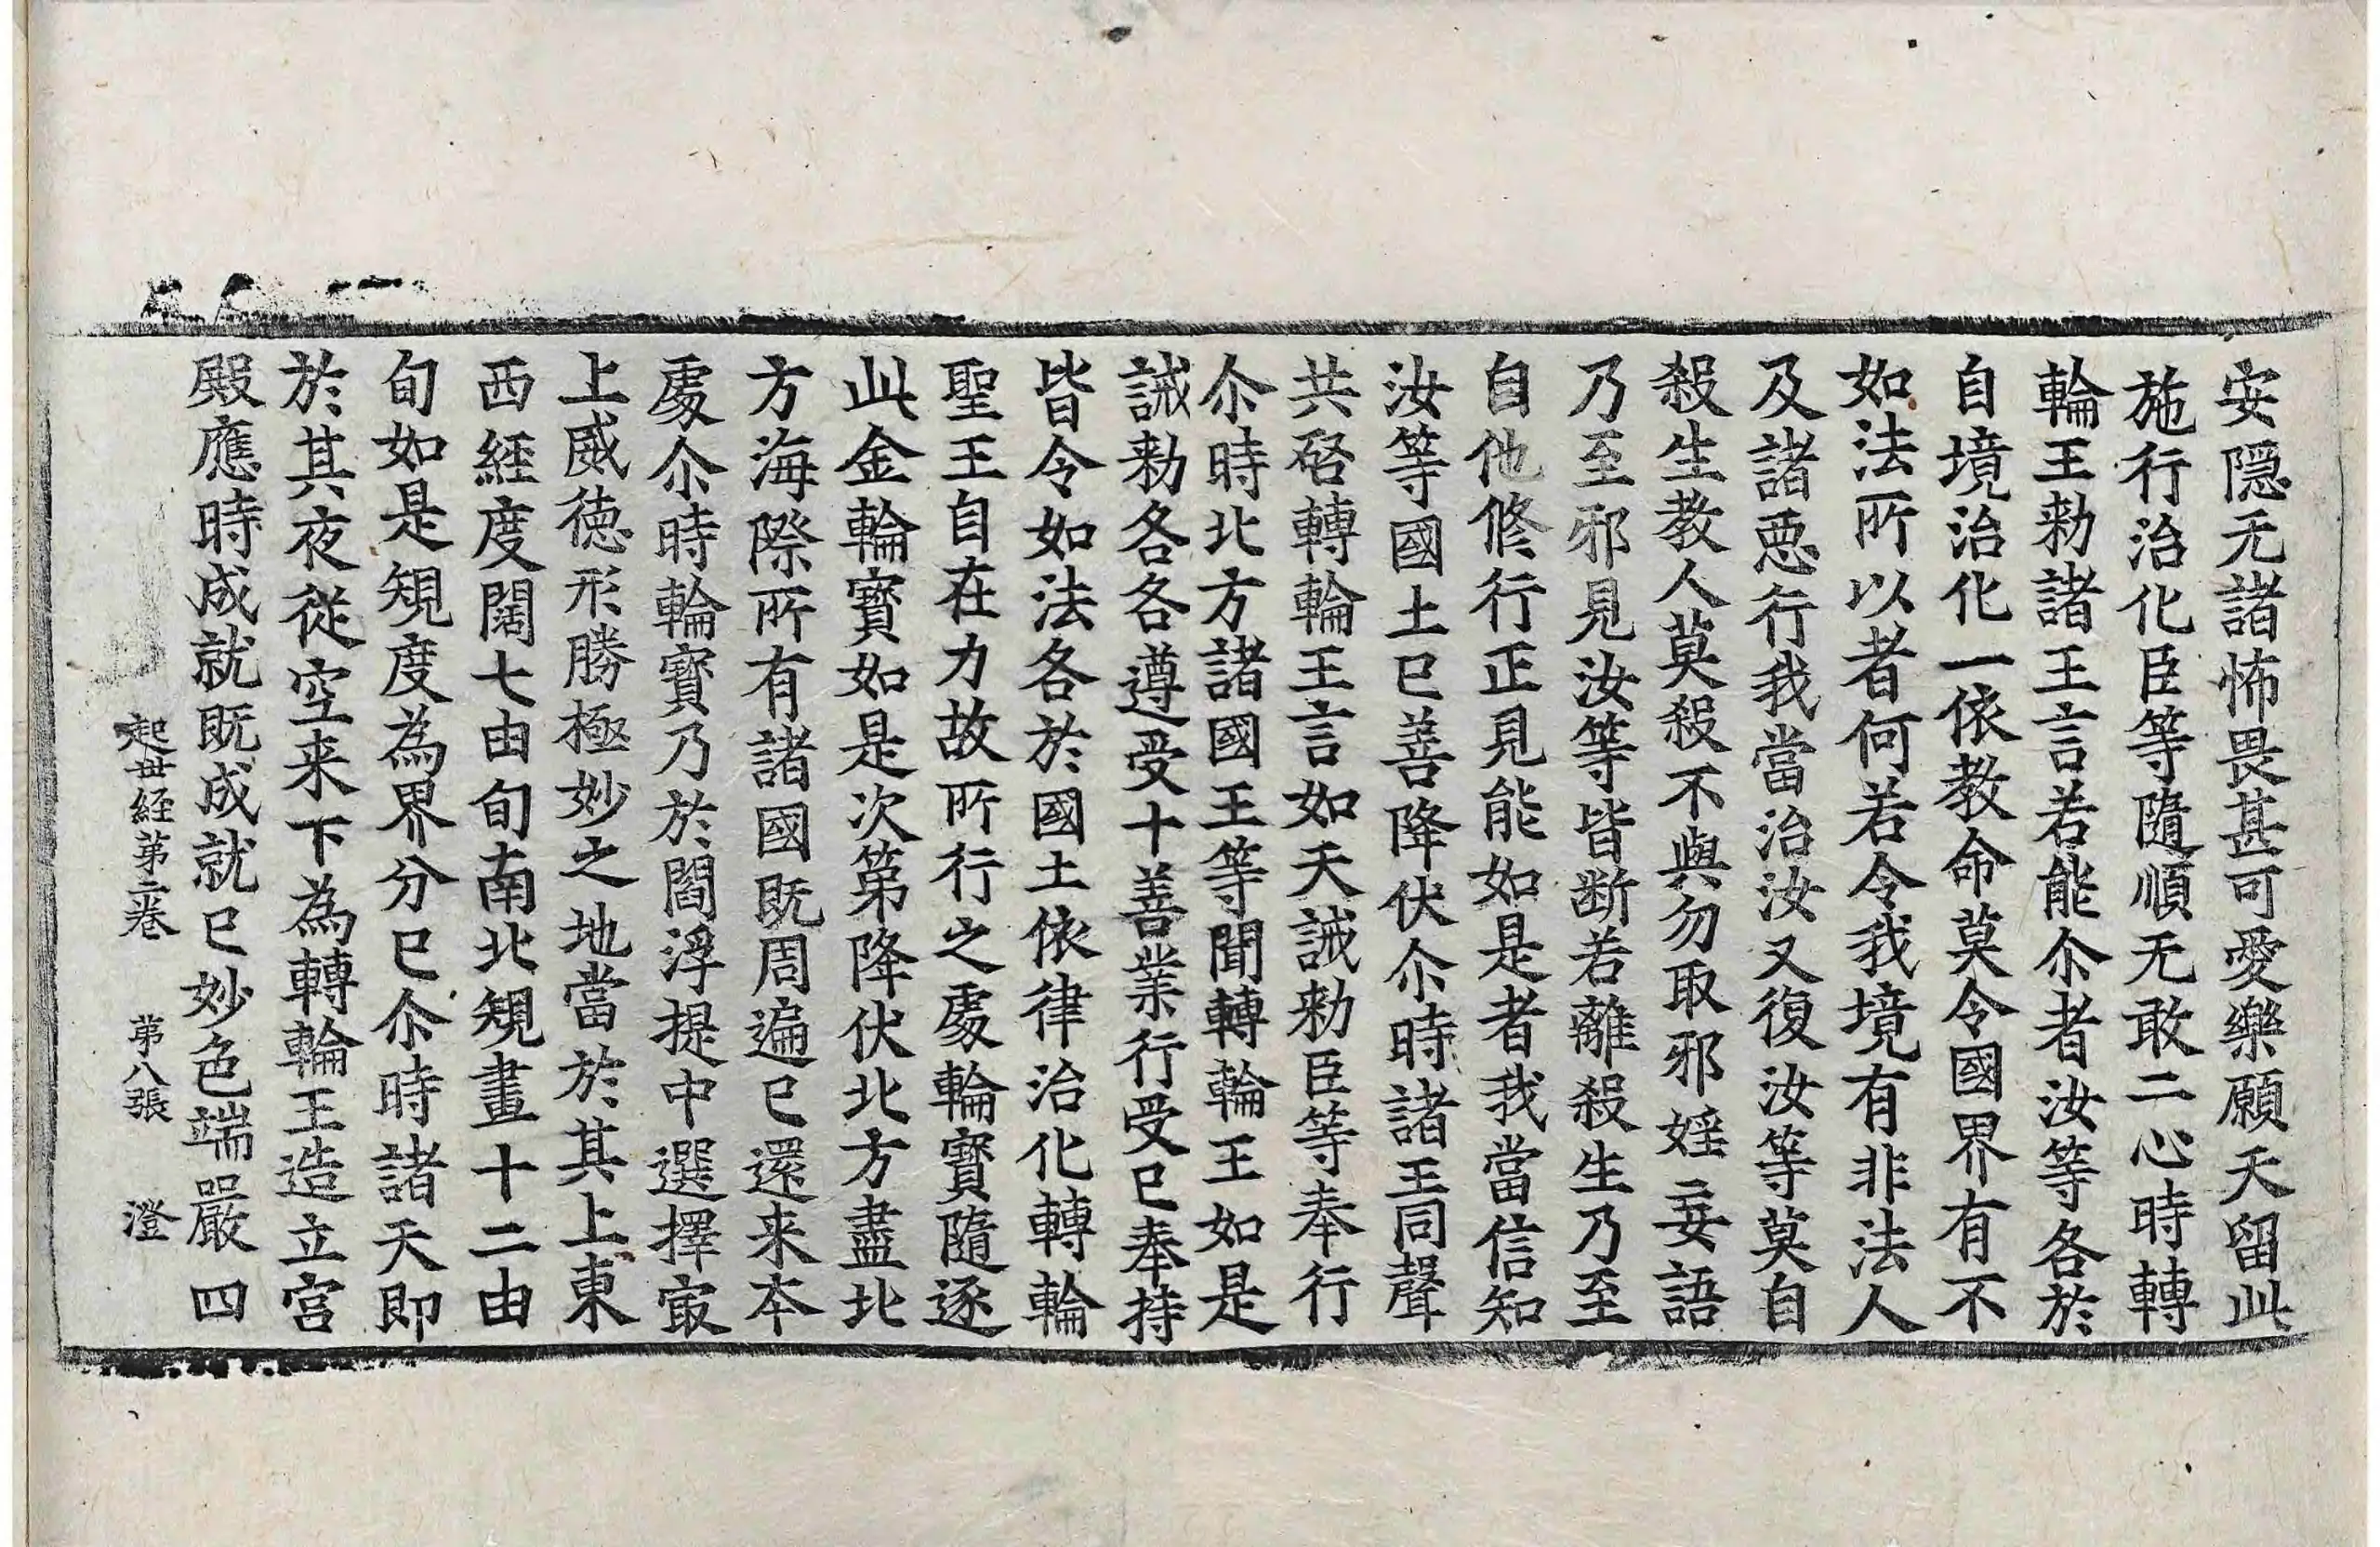 安隠无諸怖畏甚可愛樂願天留此
施行治化臣等隨順无敢二心時轉
輪王勑諸王言若能尒者汝等各於
自境治化一依教命莫令國界有不
如法所以者何若令我境有非法人
及諸惡行我當治汝又復汝等莫自
殺生教人莫殺不與勿取邪婬妄語
乃至邪見汝等皆断若離殺生乃至
自他修行正見能如是者我當信知
汝等國土已善降伏尒時諸王同聲
共啓轉輪王言如天誡勑臣等奉行
尒時北方諸國王等聞轉輪王如是
誡勑各各遵受十善業行受已奉持
皆令如法各於國土依律治化轉輪
聖王自在力故所行之處輪寶隨逐
此金輪寶如是次第降伏北方盡北
方海際所有諸國既周遍已還来本
處尒時輪寶乃於閻浮提中選擇㝡
上威徳形勝極妙之地當於其上東
西経度闊七由旬南北規畫十二由
旬如是規度為界分已尒時諸天即
於其夜從空来下為轉輪王造立宮
殿應時成就既成就已妙色端嚴四
起世経第二卷　第八張　澄